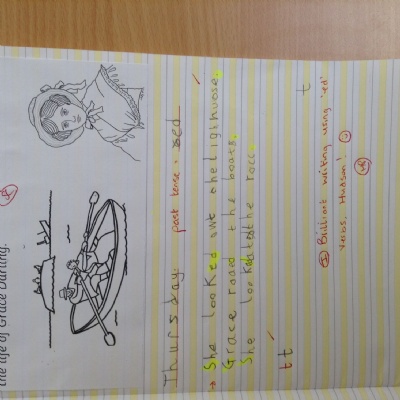 the life of Grace Darling.
Thursday. past tense · sed
→ She looked out
Grace rood the boats.
She the
tt
t
(I) Brilliant writing using 'ed'
verbs. Hudson!